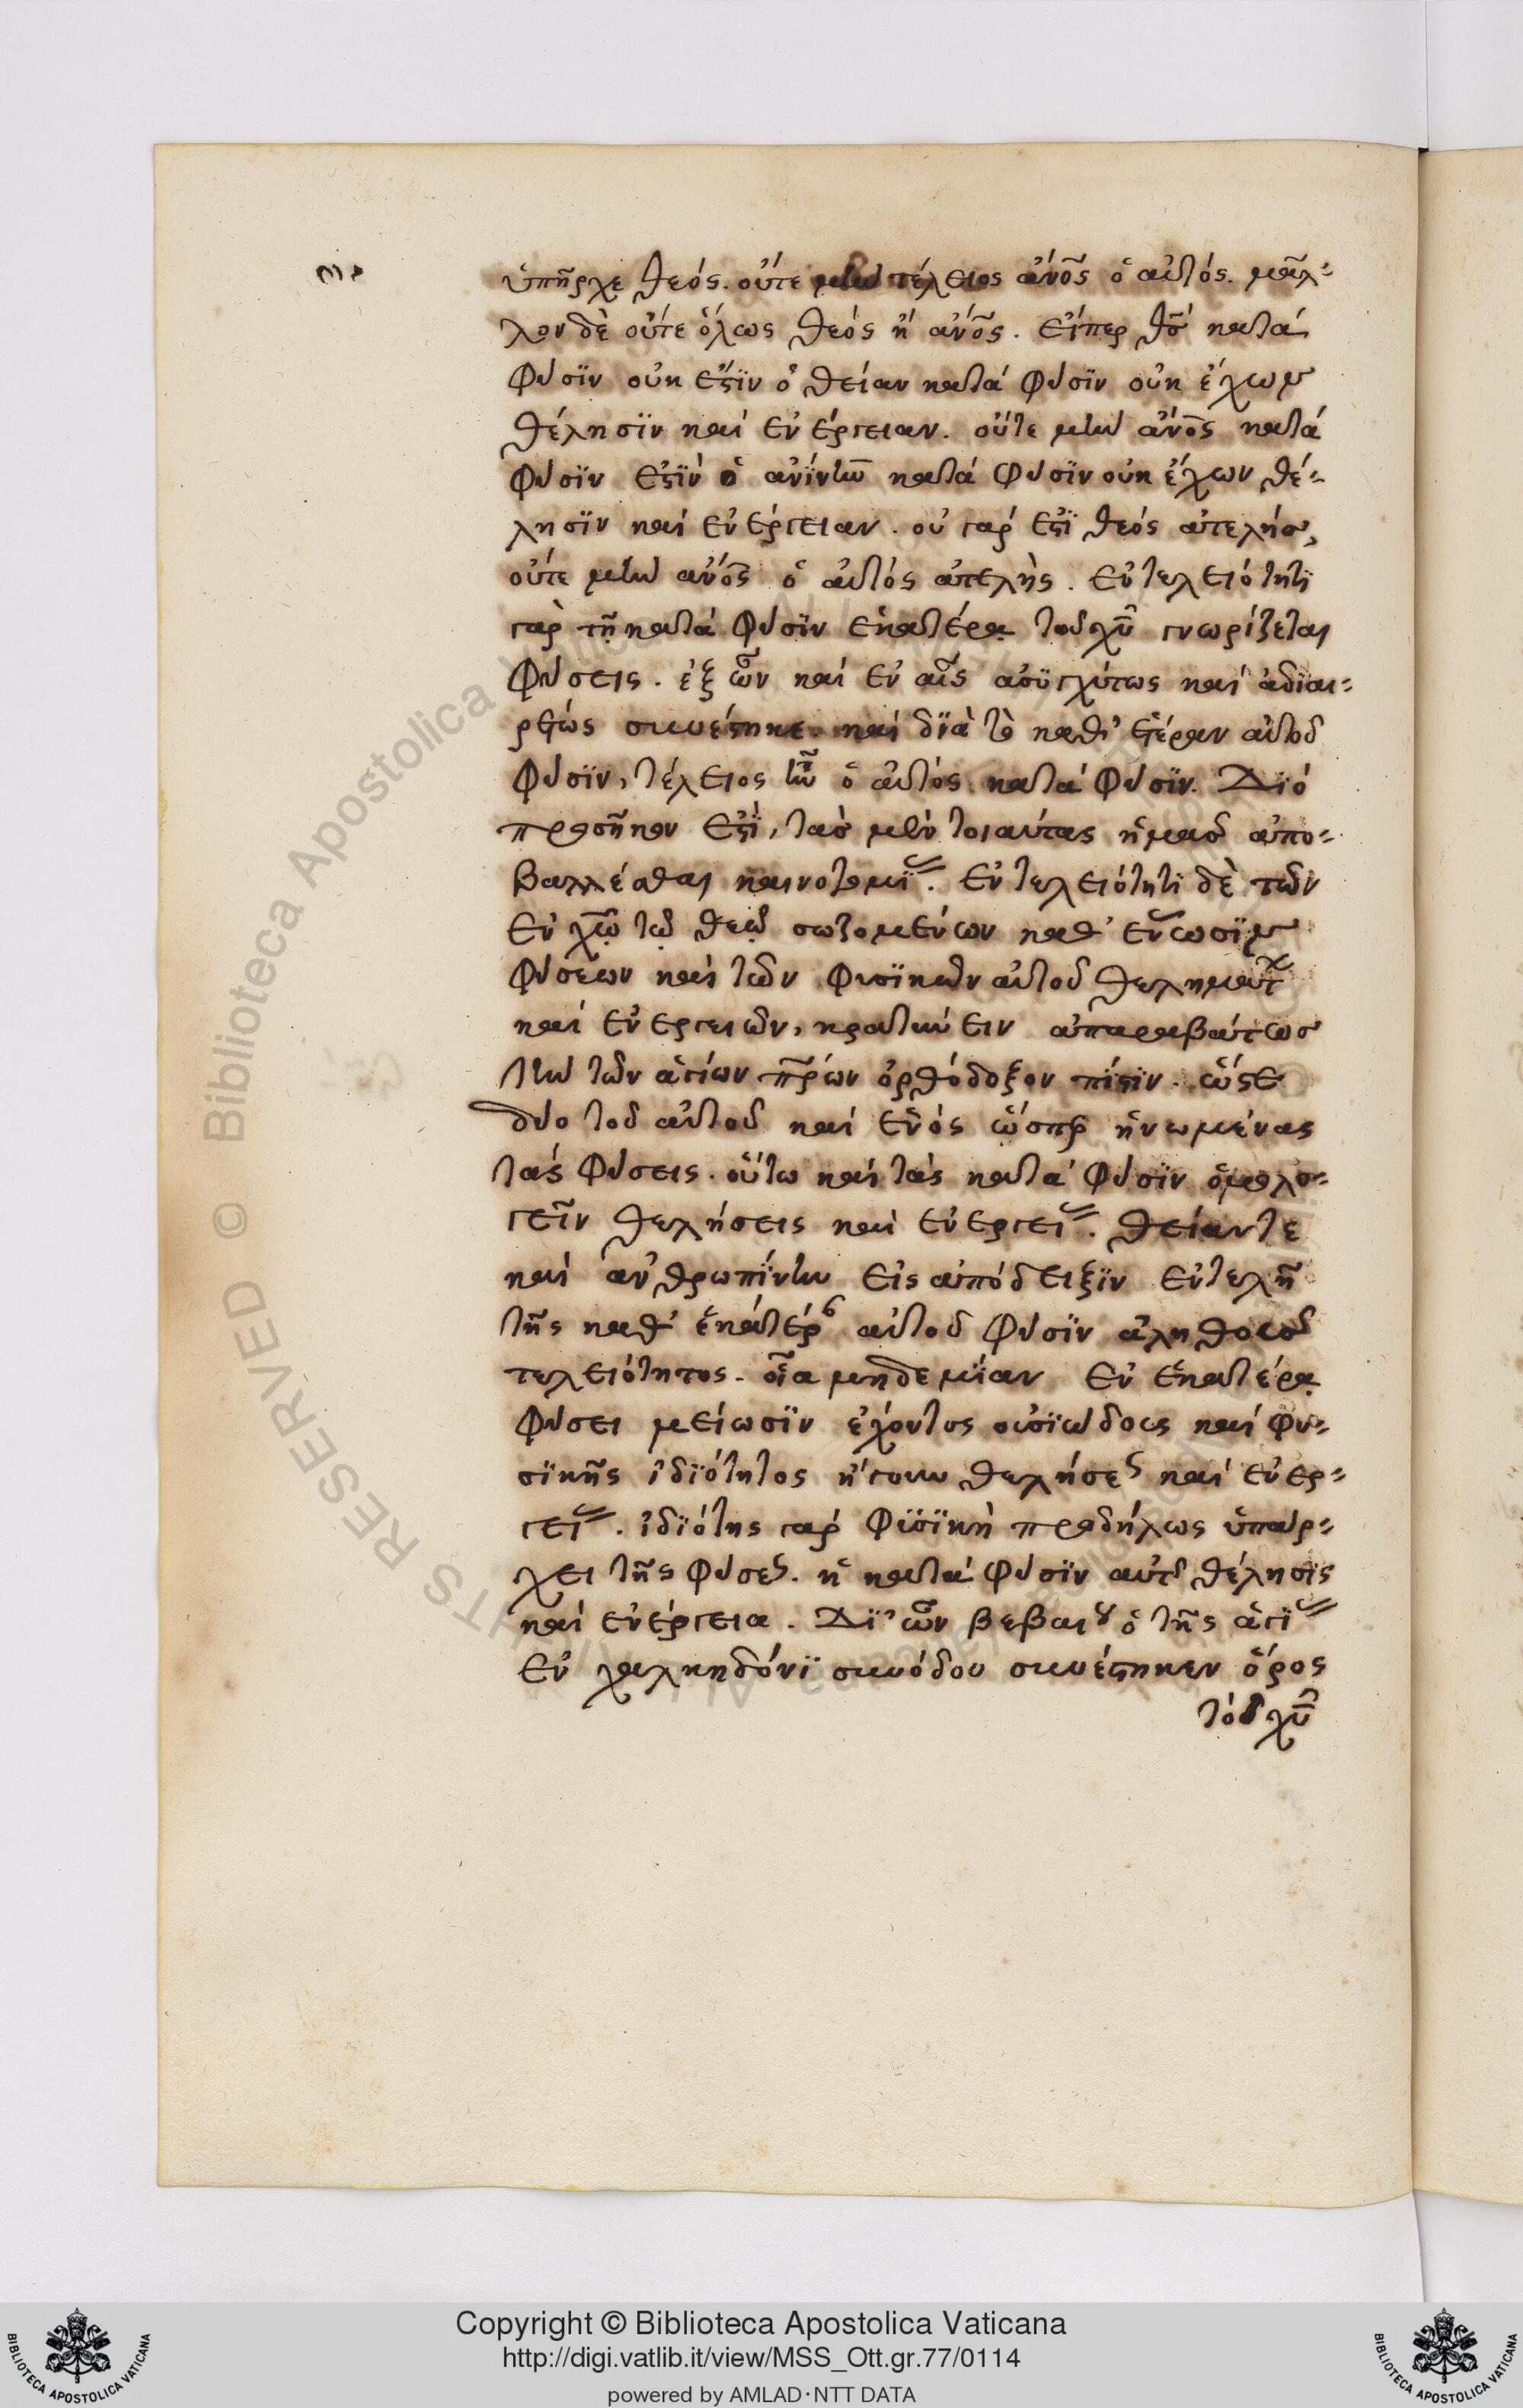 ὑπῆρχε θεός. οὔτε μὴν τέλειος ἄνο̅ς ὁ αὐτός. μᾶλ-
λον δὲ οὔτε ὅλως θεός ἢ ἄνο̅ς. εἴπερ θσ̅ κατὰ
φύσϊν οὐκ ἔστϊν ὁ θείαν κατὰ φύσϊν οὐκ ἔχων
θέλησϊν καὶ ἐνέργειαν. οὔτε μὴν ἄνο̅ς κατὰ
φύσϊν ἐστϊν ὁ ἀνίνην̅ κατὰ φύσϊν οὐκ ἔχων θέ-
λησϊν καὶ ἐνέργειαν. οὐ γάρ ἐστϊ θεός ἀτελής,
οὔτε μὴν ἄνο̅ς ὁ αὐτός ἀτελὴς. ἐν τελειότητϊ
γὰρ τῇ κατὰ φύσϊν ἑκατέρα τοῦ χυ̅ γνωρίζεται
φύσεις. ἐξ ὧν καὶ ἐν αἷς ἀσϋγχύτως καὶ ἀδϊαι-
ρέτως συνέστηκε. καὶ δϊὰ τὸ καθ' ἑτέραν αὐτοῦ
φύσϊν, τέλειος ἦν ὁ αὐτός κατὰ φύσϊν. Δϊό
προσῆκον ἐστϊ, τὰς μὲν τοιαύτας ἡμᾶς ἀπο-
βαλλέσθαι καινοτομϊ̅. ἐν τελειότητϊ δὲ τῶν
ἐν χω̅ τῷ θεῷ σωζομένων καθ' ἕνωσϊν
φύσεων καὶ τῶν φυσϊκῶν αὐτοῦ θελημάτ
καὶ ἐνεργειῶν, κρατύνειν ἀπαραβάτως
τὴν τῶν ἁγίων πρ̅ων ὀρθόδοξον πίστϊν. ὥστε
δύο τοῦ αὐτοῦ καὶ ἑνός ὥσπερ ἡνωμένας
τὰς φύσεις. οὕτω καὶ τὰς κατὰ φύσϊν ὁμολο-
γεῖν θελήσεις καὶ ἐνεργεί. θείαν τε
καὶ ἀνθρωπίνην εἰς ἀπόδειξϊν ἐντελῆ
τῆς καθ' ἑκατέρ αὐτοῦ φύσϊν ἀληθοῦς
τελειότητος. οἷα μηδεμΐαν ἐν ἑκατέρᾳ
φύσει μείωσϊν ἔχοντος οὐσϊώδους καὶ φυ-
σϊκῆς ἰδϊότητος ἤγουν θελήσε καὶ ἐνερ-
γεί. ἰδϊότης γάρ φϋσϊκὴ προδήλως ὑπάρ-
χει τῆς φύσε. ἡ κατὰ φύσϊν αὐτ θέλησϊς
καὶ ἐνέργεια. Δϊ' ὧν βεβαιοῖ ὁ τῆς ἁγϊ
ἐν χαλκηδόνϊ συνόδου συνέστηκεν ὅρος
τοῦ χυ̅
Copyright © Biblioteca Apostolica Vaticana
http://digi.vatlib.it/view/MSS_Ott.gr.77/0114
powered by AMLAD·NTT DATA